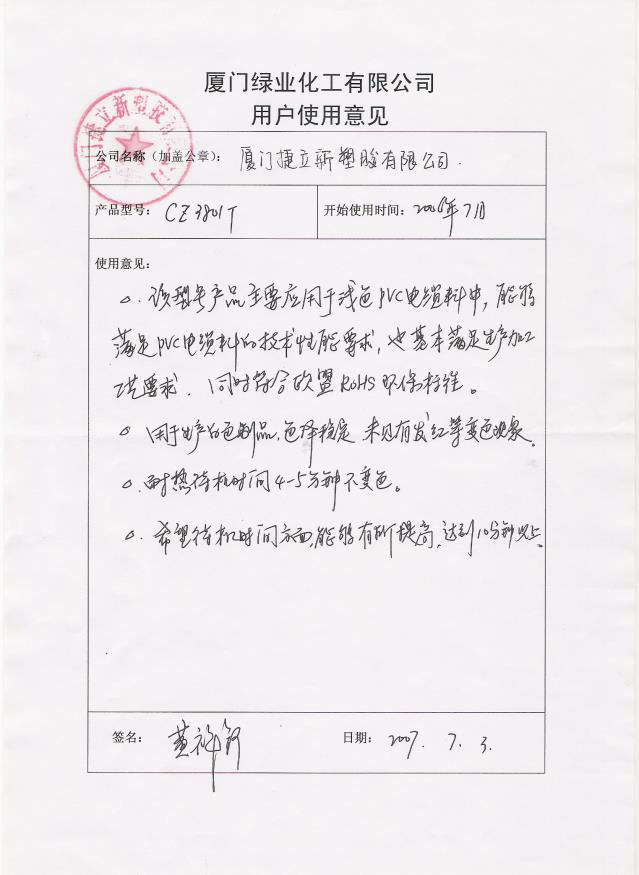 厦门绿业化工有限公司
用户使用意见
公司名称（加盖公章）： 厦门捷立新塑胶有限公司.
产品型号： CZ3801T 开始使用时间：2006年7月
使用意见：
△. 该型号产品主要应用于浅色PVC电缆料中，能够
满足PVC电缆料的技术性能要求，也基本满足生产加工
工艺要求. 同时符合欧盟ROHS环保标准。
△ 用于生产白色制品，色泽稳定，未见有发红等变色现象。
△. 耐热待机时间4-5分钟不变色。
△. 希望待机时间方面，能够有所提高，达到10分钟以上。
签名： 日期： 2007. 7. 3.